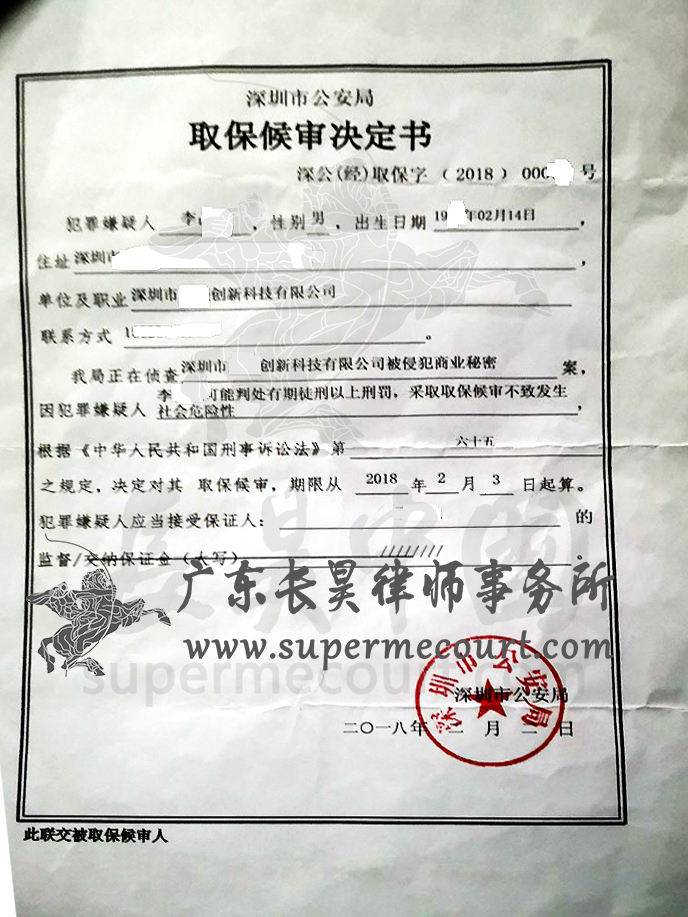 深圳市公安局
取保候审决定书
深公(经)取保字(2018)000 号
犯罪嫌疑人 李 ,性别 男 ,出生日期 19 年02月14日 ,
住址 深圳市 ,
单位及职业 深圳市 创新科技有限公司
联系方式 1 。
我局正在侦查 深圳市 创新科技有限公司被侵犯商业秘密 案,
李 可能判处有期徒刑以上刑罚,采取取保候审不致发生
因犯罪嫌疑人 社会危险性 ,
根据《中华人民共和国刑事诉讼法》第 六十五
之规定,决定对其 取保候审,期限从 2018 年 2 月 3 日起算。
犯罪嫌疑人应当接受保证人: 的
监督/交纳保证金(大写) ///////// 。
广东长昊律师事务所
www.supermecourt.com
supermecourt.com
深圳市公安局
深圳市公安局
二〇一八年 二 月 二 日
此联交被取保候审人